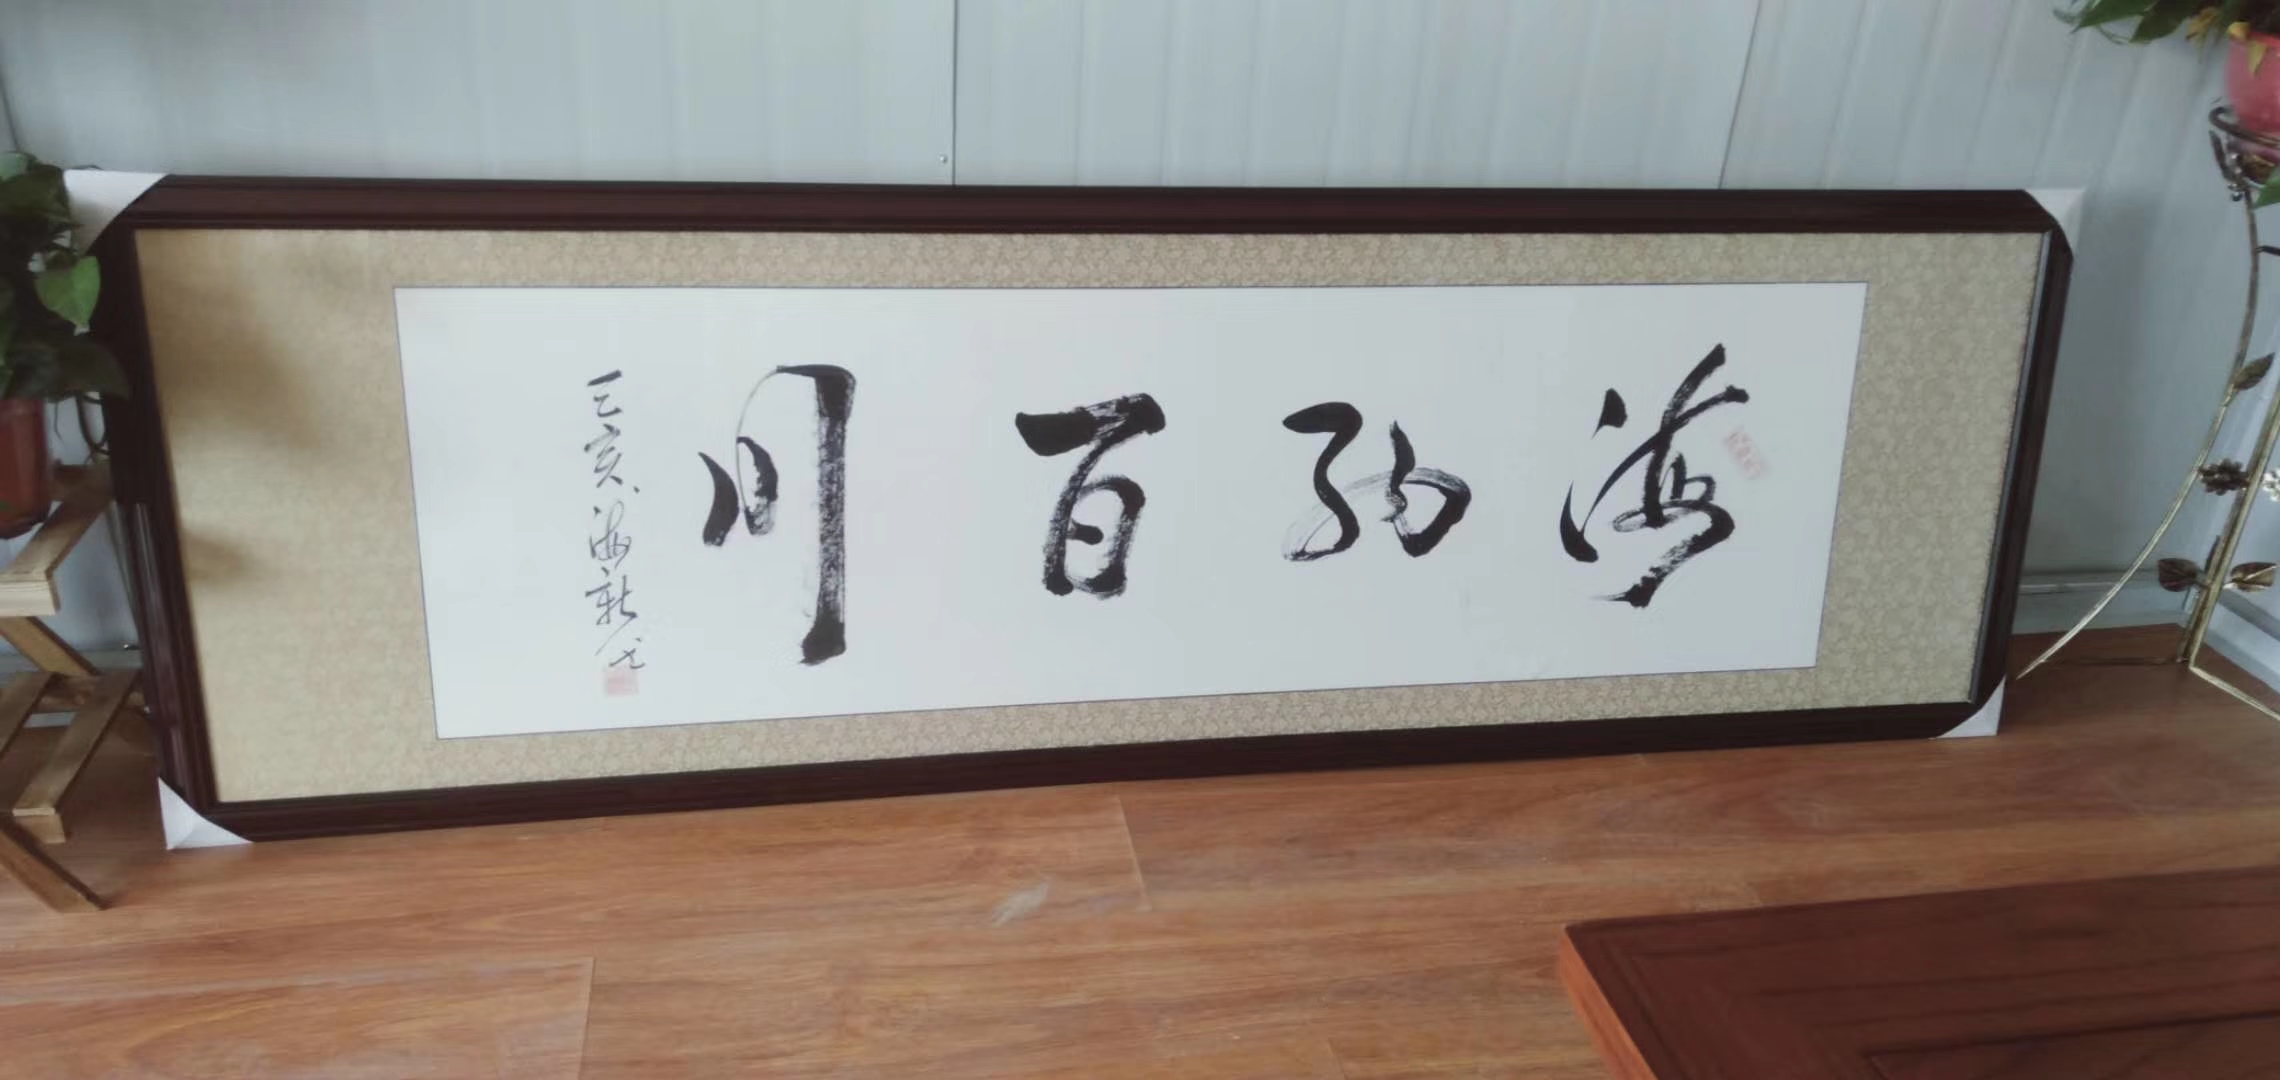 海纳百川
己亥海新书